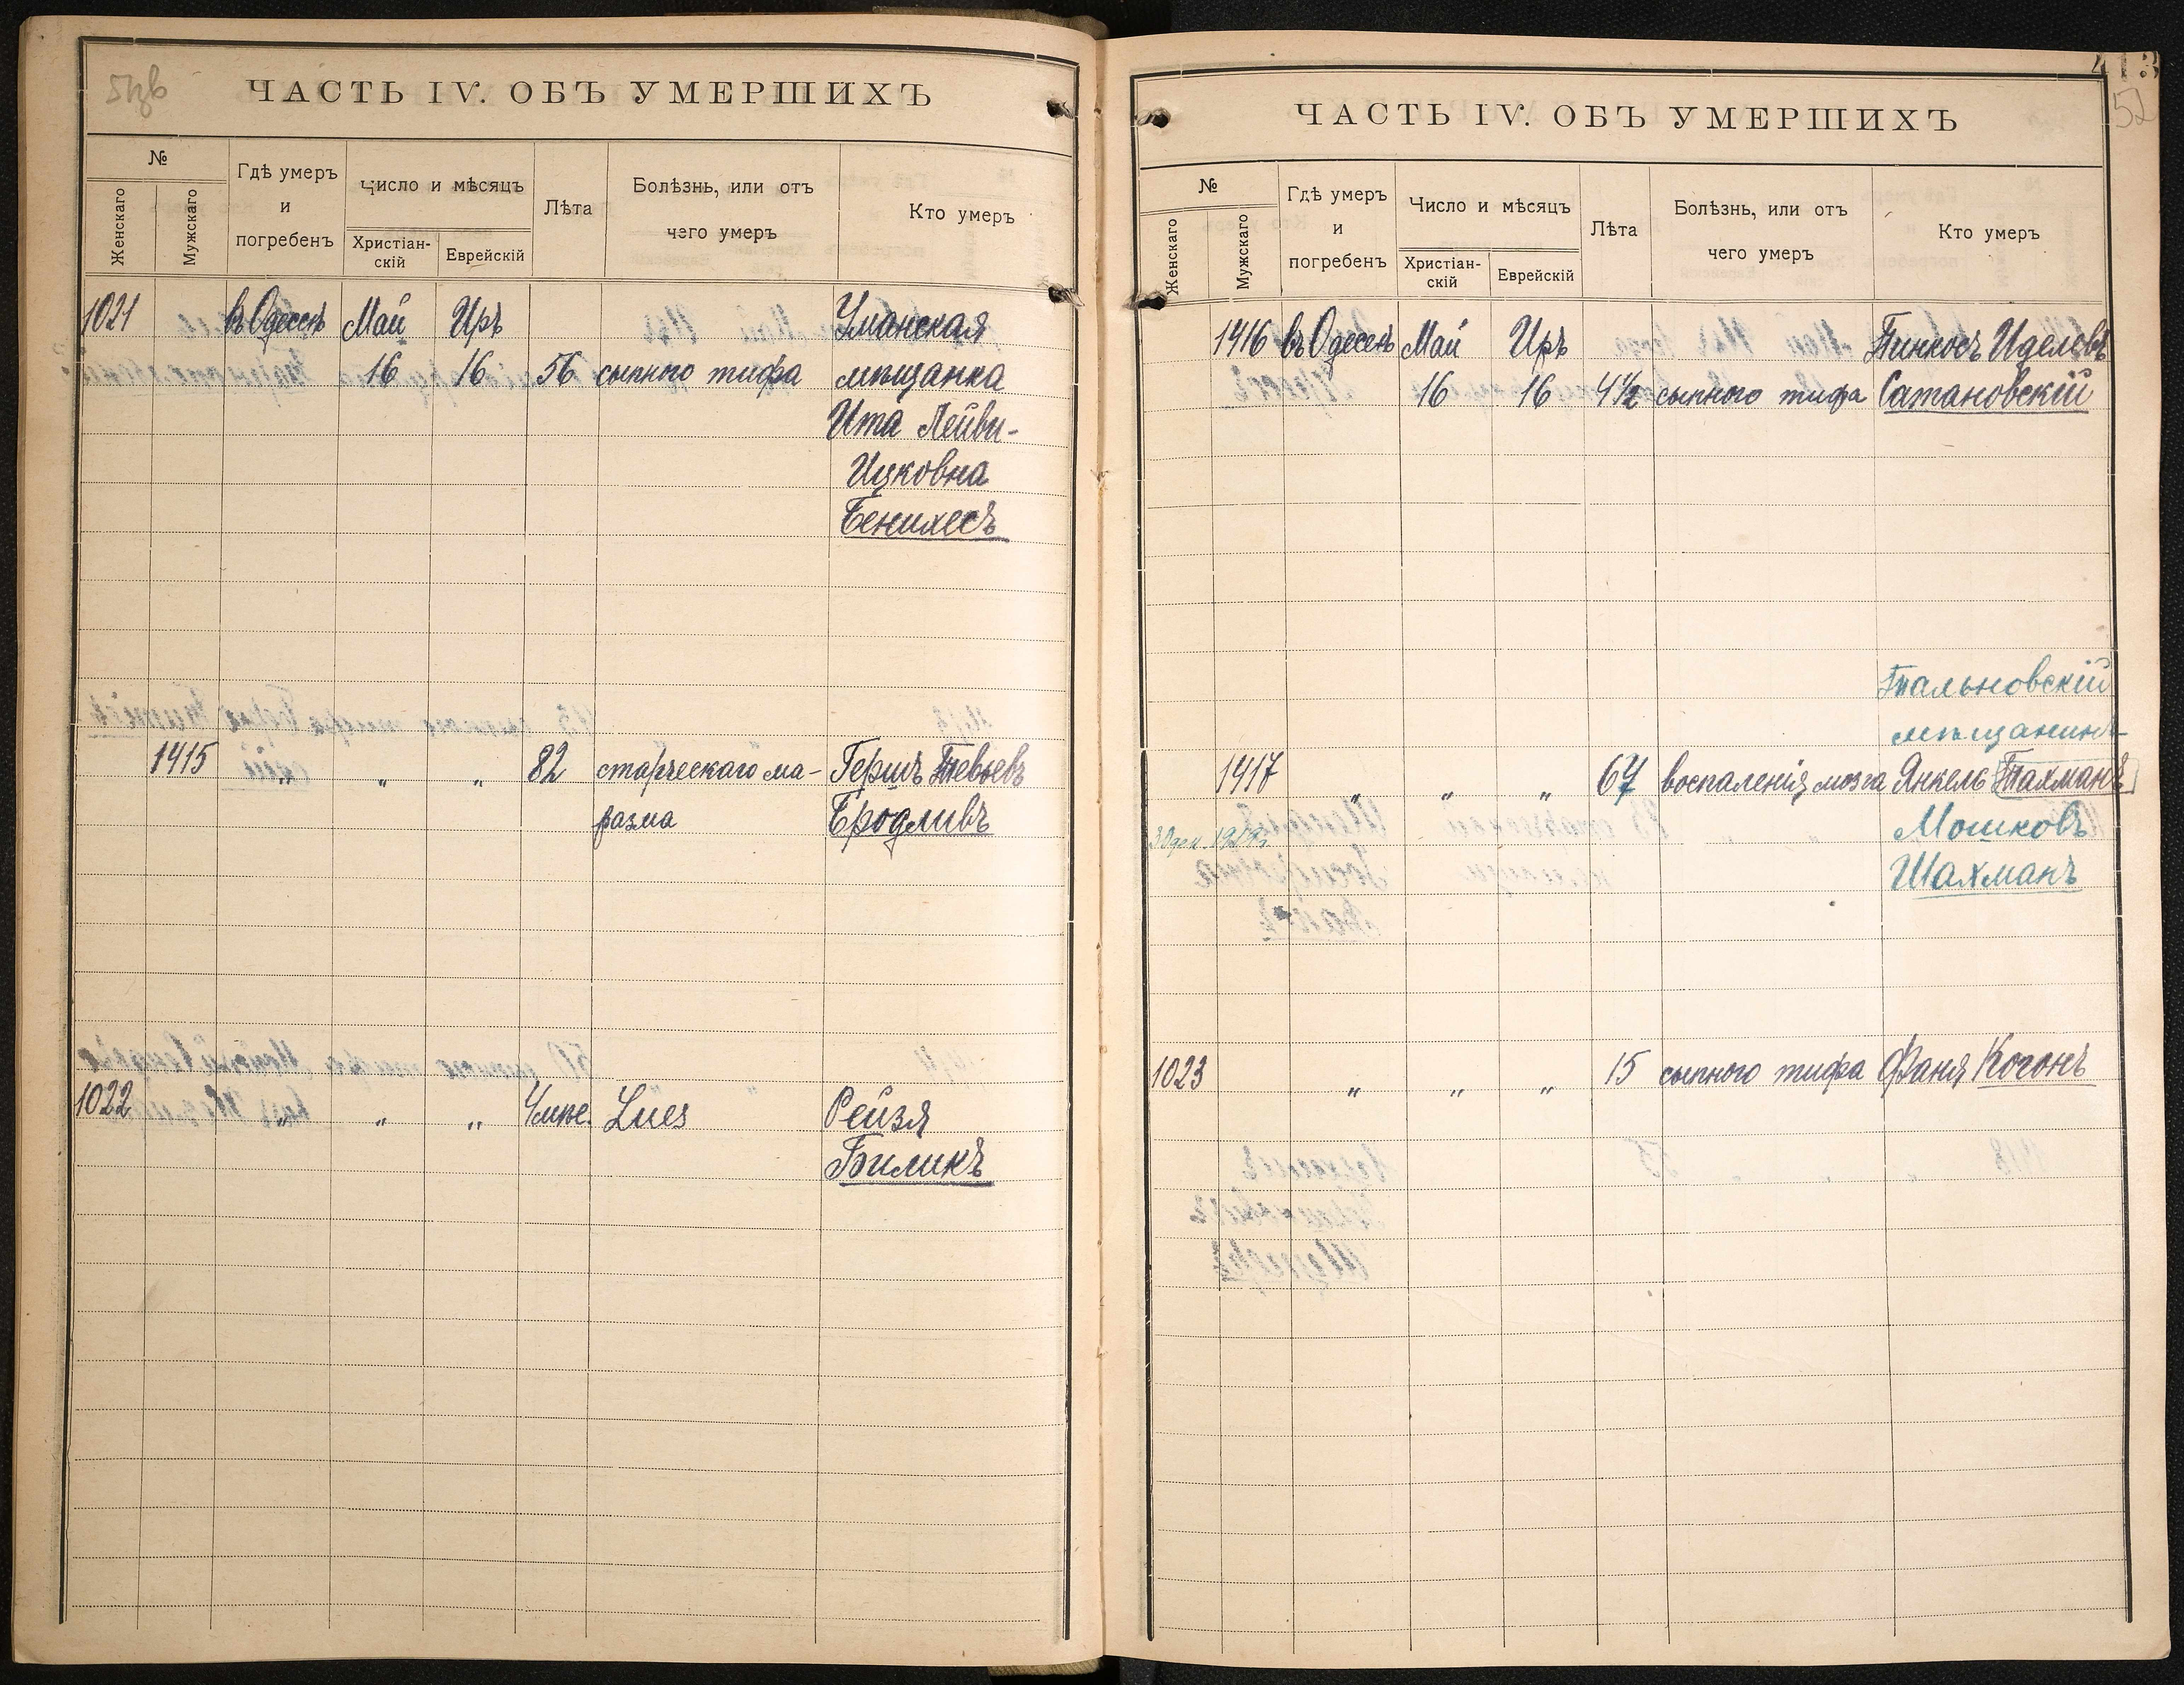 ЧАСТЬ IV. ОБЪ УМЕРШИХЪ
№
Женскаго
Мужскаго
Гдѣ умеръ
и
погребенъ
Число и мѣсяцъ
Христіан-
скій
Еврейскій
Лѣта
Болѣзнь, или отъ
чего умеръ
Кто умеръ
1021 въ Одессѣ Май Иръ Уманская
16 16 56 сыпного тифа мѣщанка
Ита Лейви-
Ицковна
Бенилесъ
1415 „ „ „ 82 старческаго ма- Гершъ Тевьевъ
разма Бродливъ
1022 „ „ „ 4 мѣс. Lues Рейзя
Биликъ
413
52
ЧАСТЬ IV. ОБЪ УМЕРШИХЪ
№
Женскаго
Мужскаго
Гдѣ умеръ
и
погребенъ
Число и мѣсяцъ
Христіан-
скій
Еврейскій
Лѣта
Болѣзнь, или отъ
чего умеръ
Кто умеръ
1416 въ Одессѣ Май Иръ Пинкосъ Иделевъ
16 16 4½ сыпного тифа Сатановскій
Тальновскій
мѣщанинъ
1417 „ „ „ 67 воспаленія мозга Янкель Тахманъ
Мошковъ
Шахманъ
1023 „ „ „ 15 сыпного тифа Фаня Когонъ